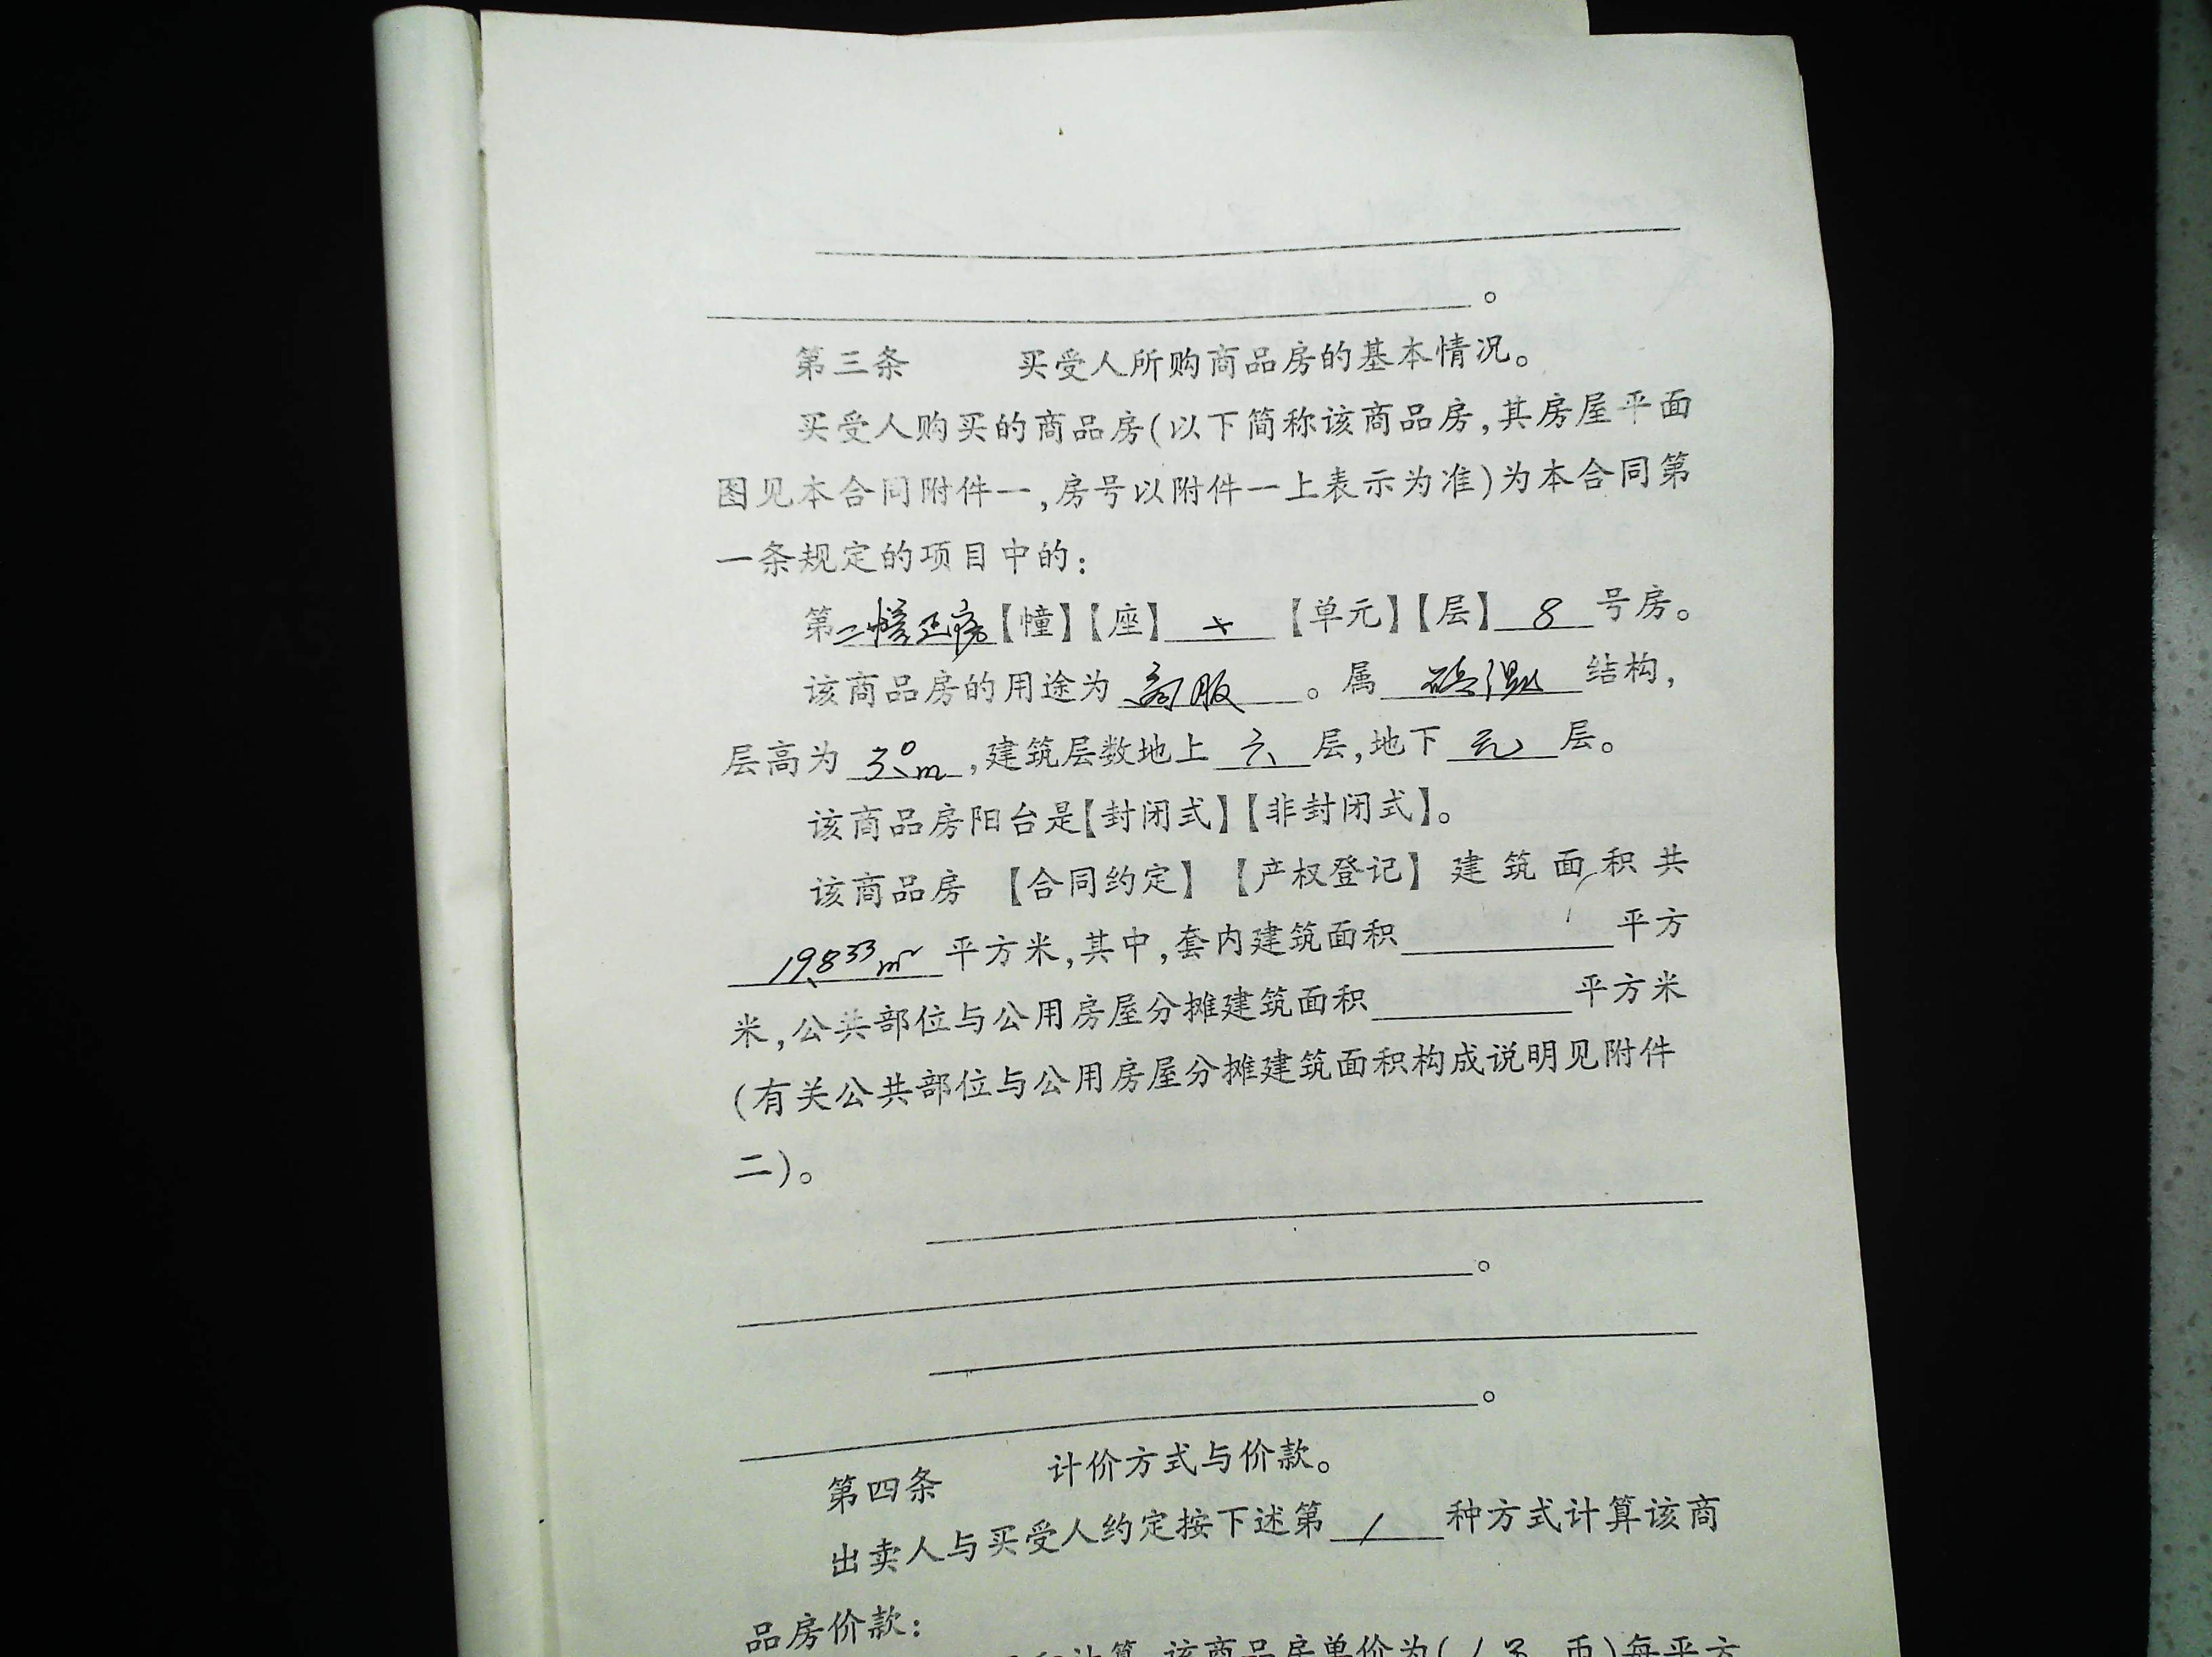 。
第三条 买受人所购商品房的基本情况。
买受人购买的商品房(以下简称该商品房,其房屋平面
图见本合同附件一,房号以附件一上表示为准)为本合同第
一条规定的项目中的:
第二幢【幢】【座】【单元】【层】8号房。
该商品房的用途为商服。属砖混结构,
层高为3.0m,建筑层数地上六层,地下无层。
该商品房阳台是【封闭式】【非封闭式】。
该商品房 【合同约定】 【产权登记】 建筑面积共
19.833m²平方米,其中,套内建筑面积 平方
米,公共部位与公用房屋分摊建筑面积 平方米
(有关公共部位与公用房屋分摊建筑面积构成说明见附件
二)。
。
。
第四条 计价方式与价款。
出卖人与买受人约定按下述第 / 种方式计算该商
品房价款:
计算,该商品房单价为( 币)每平方